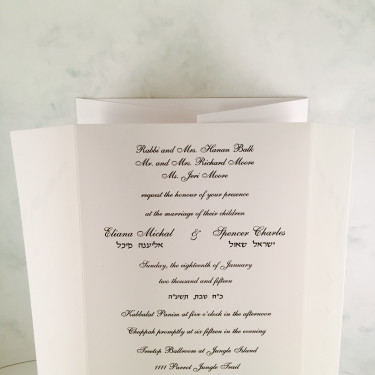 Rabbi and Mrs. Hanan Balk
Mr. and Mrs. Richard Moore
Ms. Jeri Moore
request the honour of your presence
at the marriage of their children
Eliana Michal & Spencer Charles
אליענה מיכל ישראל שאול
Sunday, the eighteenth of January
two thousand and fifteen
כ״ח טבת, תשע״ה
Kabbalat Panim at five o'clock in the afternoon
Chuppah promptly at six fifteen in the evening
Treetop Ballroom at Jungle Island
1111 Parrot Jungle Trail